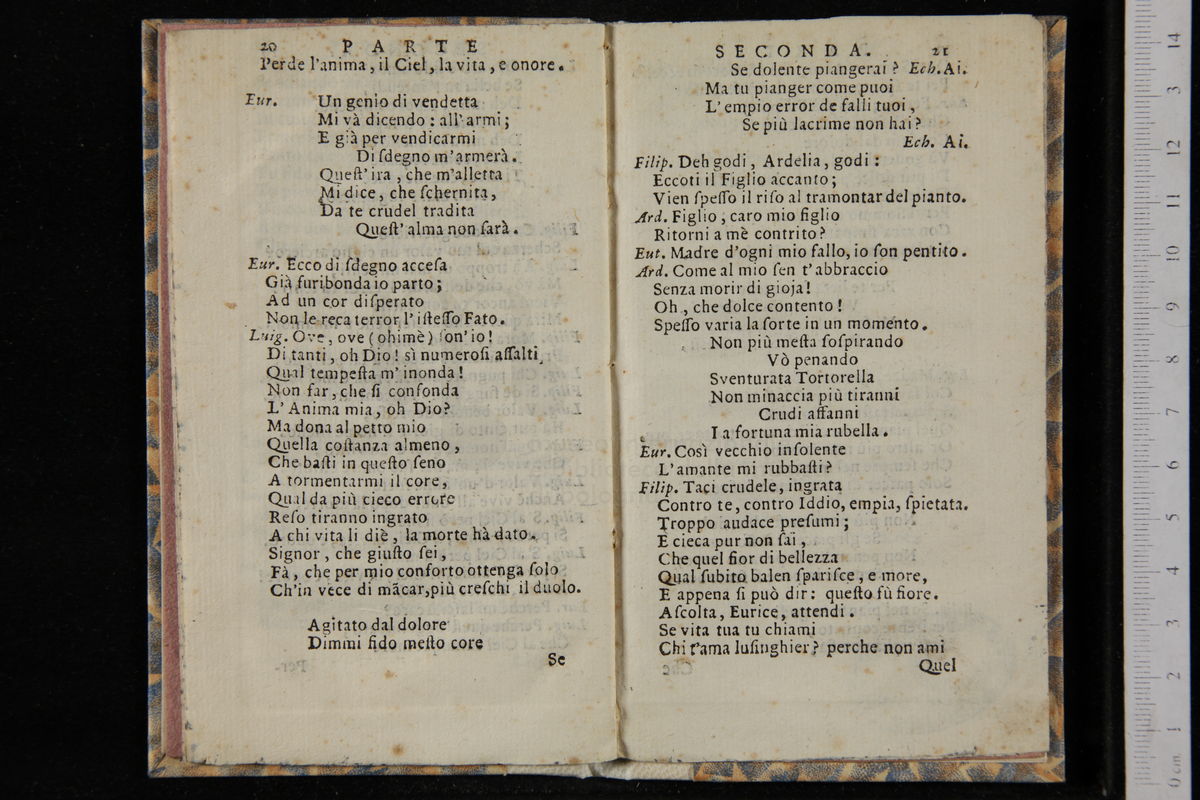 20 PARTE
Perde l'anima, il Ciel, la vita, e onore.
Eur. Un genio di vendetta
Mi và dicendo: all'armi;
E già per vendicarmi
Di ſdegno m'armerà.
Queſt'ira, che m'alletta
Mi dice, che ſchernita,
Da te crudel tradita
Queſt'alma non ſarà.
Eur. Ecco di ſdegno acceſa
Già furibonda io parto;
Ad un cor diſperato
Non le reca terror l'iſteſſo Fato.
Luig. Ove, ove (ohimè) ſon'io!
Di tanti, oh Dio! sì numeroſi aſſalti
Qual tempeſta m'inonda!
Non far, che ſi confonda
L'Anima mia, oh Dio?
Ma dona al petto mio
Quella coſtanza almeno,
Che baſti in queſto ſeno
A tormentarmi il core,
Qual da più cieco errore
Reſo tiranno ingrato
A chi vita li diè, la morte hà dato.
Signor, che giuſto ſei,
Fà, che per mio conforto ottenga ſolo
Ch'in vece di mãcar, più creſchi il duolo.
Agitato dal dolore
Dimmi fido meſto core
Se
SECONDA. 21
Se dolente piangerai? Ech. Ai.
Ma tu pianger come puoi
L'empio error de falli tuoi,
Se più lacrime non hai?
Ech. Ai.
Filip. Deh godi, Ardelia, godi:
Eccoti il Figlio accanto;
Vien ſpeſſo il riſo al tramontar del pianto.
Ard. Figlio, caro mio figlio
Ritorni a mè contrito?
Eut. Madre d'ogni mio fallo, io ſon pentito.
Ard. Come al mio ſen t'abbraccio
Senza morir di gioja!
Oh, che dolce contento!
Speſſo varia la ſorte in un momento.
Non più meſta ſoſpirando
Vò penando
Sventurata Tortorella
Non minaccia più tiranni
Crudi affanni
La fortuna mia rubella.
Eur. Così vecchio inſolente
L'amante mi rubbaſti?
Filip. Taci crudele, ingrata
Contro te, contro Iddio, empia, ſpietata.
Troppo audace preſumi;
E cieca pur non ſai,
Che quel fior di bellezza
Qual ſubito balen ſpariſce, e more,
E appena ſi può dir: queſto fù fiore.
Aſcolta, Eurice, attendi.
Se vita tua tu chiami
Chi t'ama luſinghier? perche non ami
Quel